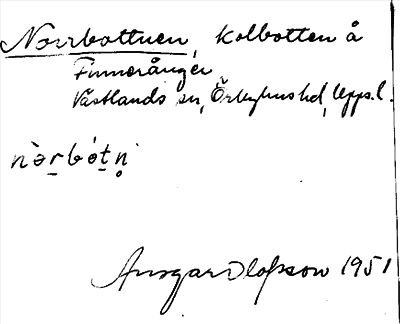 Norrbottnen, kolbotten å
Finnerånger
Västlands sn, Örbyhus hd, Upps. l.
nòrbótn̥
Ansgar Olofsson 1951